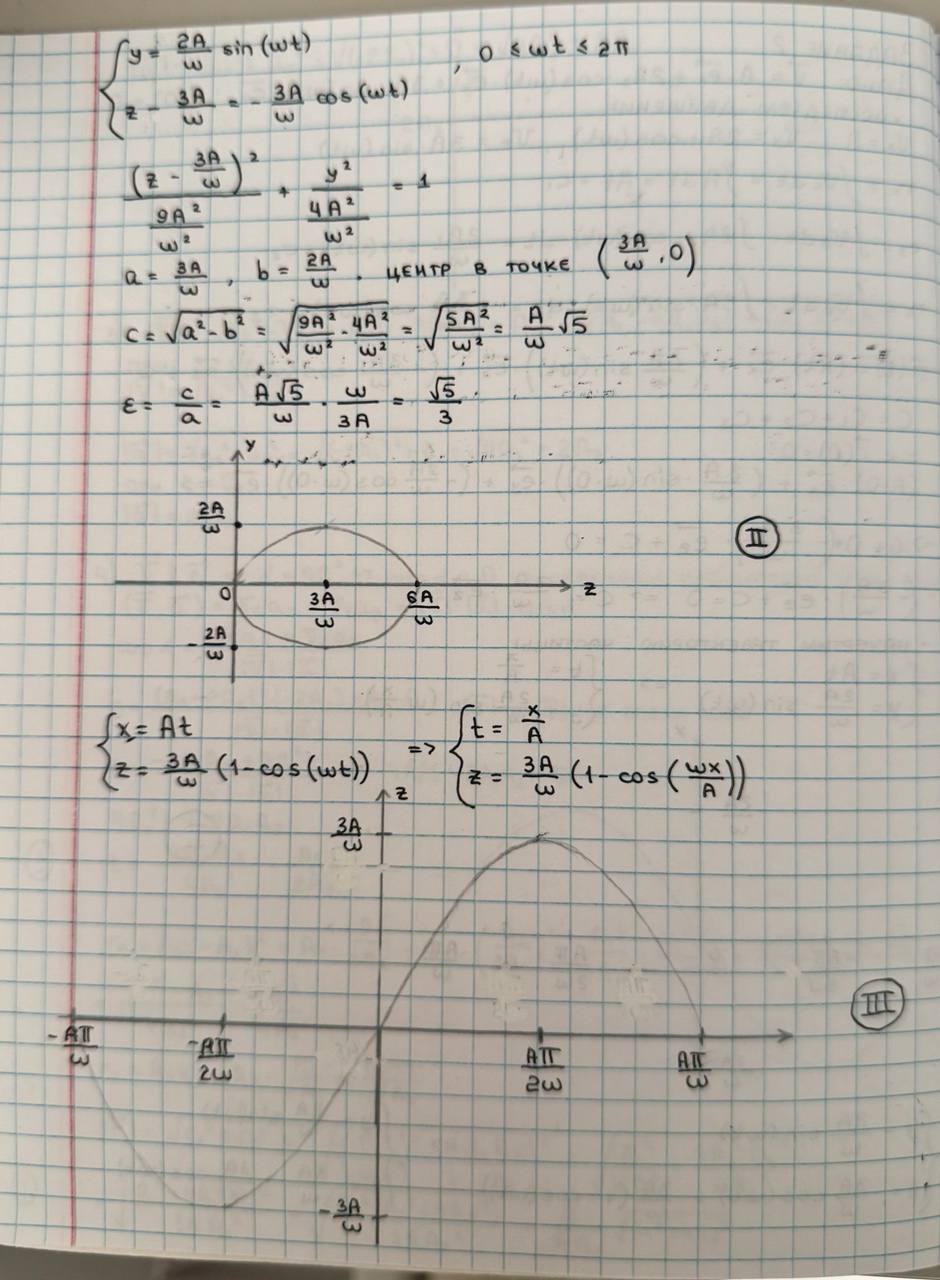 { y = 2A/ω sin(ωt) , 0 ≤ ωt ≤ 2π
z - 3A/ω = - 3A/ω cos(ωt)
(z - 3A/ω)² / (9A²/ω²) + y² / (4A²/ω²) = 1
a = 3A/ω , b = 2A/ω . ЦЕНТР В ТОЧКЕ (3A/ω , 0)
c = √(a² - b²) = √(9A²/ω² - 4A²/ω²) = √(5A²/ω²) = A/ω √5
ε = c/a = A√5/ω · ω/3A = √5/3
y
2A/ω
II
0 3A/ω 6A/ω z
-2A/ω
{ x = At => { t = x/A
z = 3A/ω (1-cos(ωt)) z = 3A/ω (1-cos(ωx/A))
z
3A/ω
III
-Aπ/ω -Aπ/2ω Aπ/2ω Aπ/ω
-3A/ω